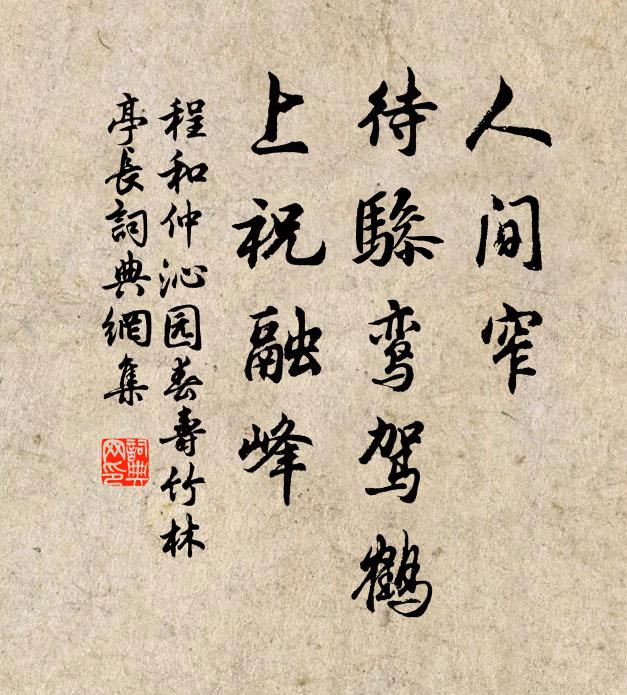 人间窄
待骖鸾驾鹤
上祝融峰
程和仲沁园春寿竹林
亭长词典網集
詞典网印